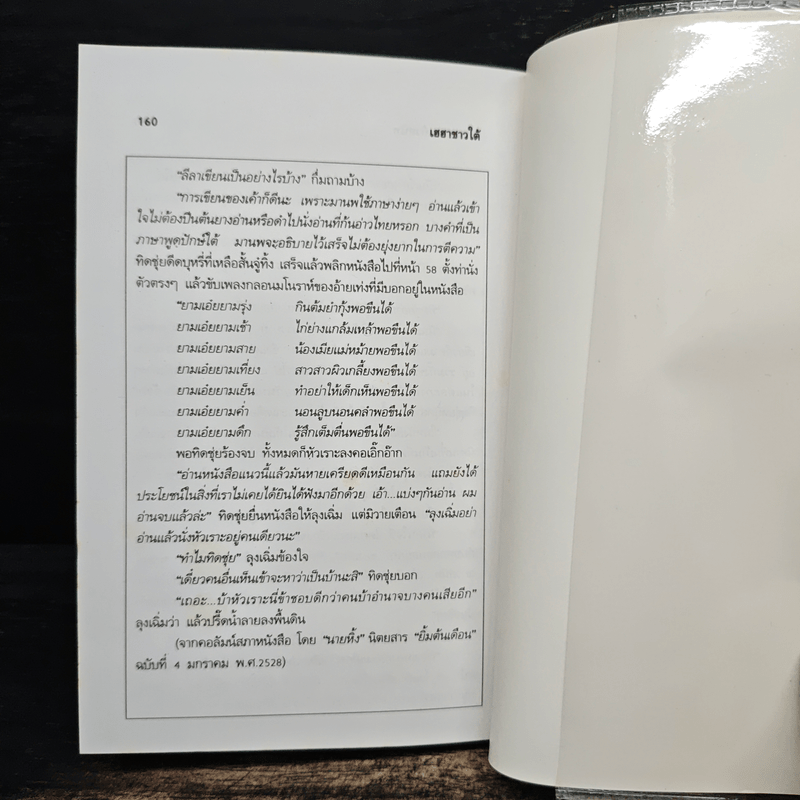 160
เฮฮาชาวใต้
"ลีลาเขียนเป็นอย่างไรบ้าง" กี่มถามบ้าง
"การเขียนของเค้าก็ดีนะ เพราะมานพใช้ภาษาง่ายๆ อ่านแล้วเข้า
ใจไม่ต้องปีนต้นยางอ่านหรือดำไปนั่งอ่านที่ก้นอ่าวไทยหรอก บางคำที่เป็น
ภาษาพูดปักษ์ใต้ มานพจะอธิบายไว้เสร็จไม่ต้องยุ่งยากในการตีความ"
ทิดซุ่ยดีดบุหรี่ที่เหลือสั้นจู๋ทิ้ง เสร็จแล้วพลิกหนังสือไปที่หน้า 58 ตั้งท่านั่ง
ตัวตรงๆ แล้วขับเพลงกลอนมโนราห์ของอ้ายเท่งที่มีบอกอยู่ในหนังสือ
"ยามเอ๋ยยามรุ่ง กินต้มยำกุ้งพอขืนได้
ยามเอ๋ยยามเช้า ไก่ย่างแกล้มเหล้าพอขืนได้
ยามเอ๋ยยามสาย น้องเมียแม่หม้ายพอขืนได้
ยามเอ๋ยยามเที่ยง สาวสาวผิวเกลี้ยงพอขืนได้
ยามเอ๋ยยามเย็น ทำอย่าให้เด็กเห็นพอขืนได้
ยามเอ๋ยยามค่ำ นอนลูบนอนคลำพอขืนได้
ยามเอ๋ยยามดึก รู้สึกเต็มตื่นพอขืนได้"
พอทิดซุ่ยร้องจบ ทั้งหมดก็หัวเราะลงคอเอิ๊กอ๊าก
"อ่านหนังสือแนวนี้แล้วมันหายเครียดดีเหมือนกัน แถมยังได้
ประโยชน์ในสิ่งที่เราไม่เคยได้ยินได้ฟังมาอีกด้วย เอ้า...แบ่งๆกันอ่าน ผม
อ่านจบแล้วล่ะ" ทิดซุ่ยยื่นหนังสือให้ลุงเฉิ่ม แต่มิวายเตือน "ลุงเฉิ่มอย่า
อ่านแล้วนั่งหัวเราะอยู่คนเดียวนะ"
"ทำไมทิดซุ่ย" ลุงเฉิ่มข้องใจ
"เดี๋ยวคนอื่นเห็นเข้าจะหาว่าเป็นบ้านะสิ" ทิดซุ่ยบอก
"เถอะ...บ้าหัวเราะนี่ข้าชอบดีกว่าคนบ้าอำนาจบางคนเสียอีก"
ลุงเฉิ่มว่า แล้วปรี๊ดน้ำลายลงพื้นดิน
(จากคอลัมน์สภาหนังสือ โดย "นายหิ้ง" นิตยสาร "ยิ้มต้นเดือน"
ฉบับที่ 4 มกราคม พ.ศ.2528)